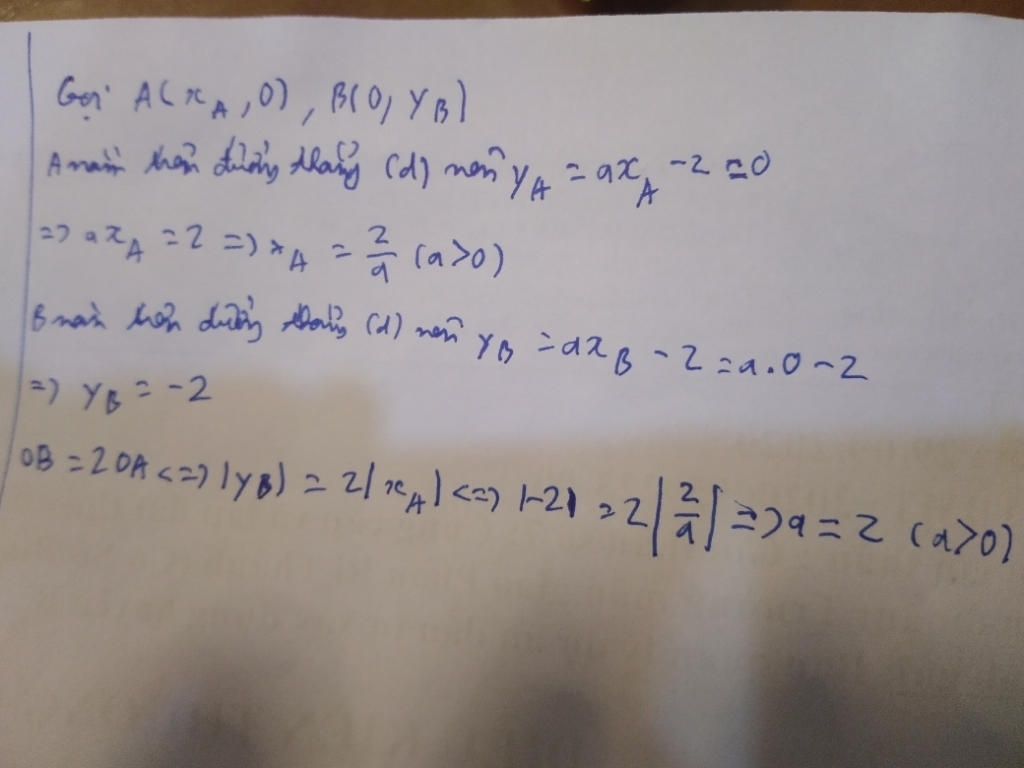 Gọi A(x_A, 0), B(0, y_B)
A nằm trên đường thẳng (d) nên y_A = ax_A - 2 = 0
=> ax_A = 2 => x_A = 2/a (a>0)
B nằm trên đường thẳng (d) nên y_B = ax_B - 2 = a.0 - 2
=> y_B = -2
OB = 2OA <=> |y_B| = 2|x_A| <=> |-2| = 2|2/a| => a = 2 (a>0)